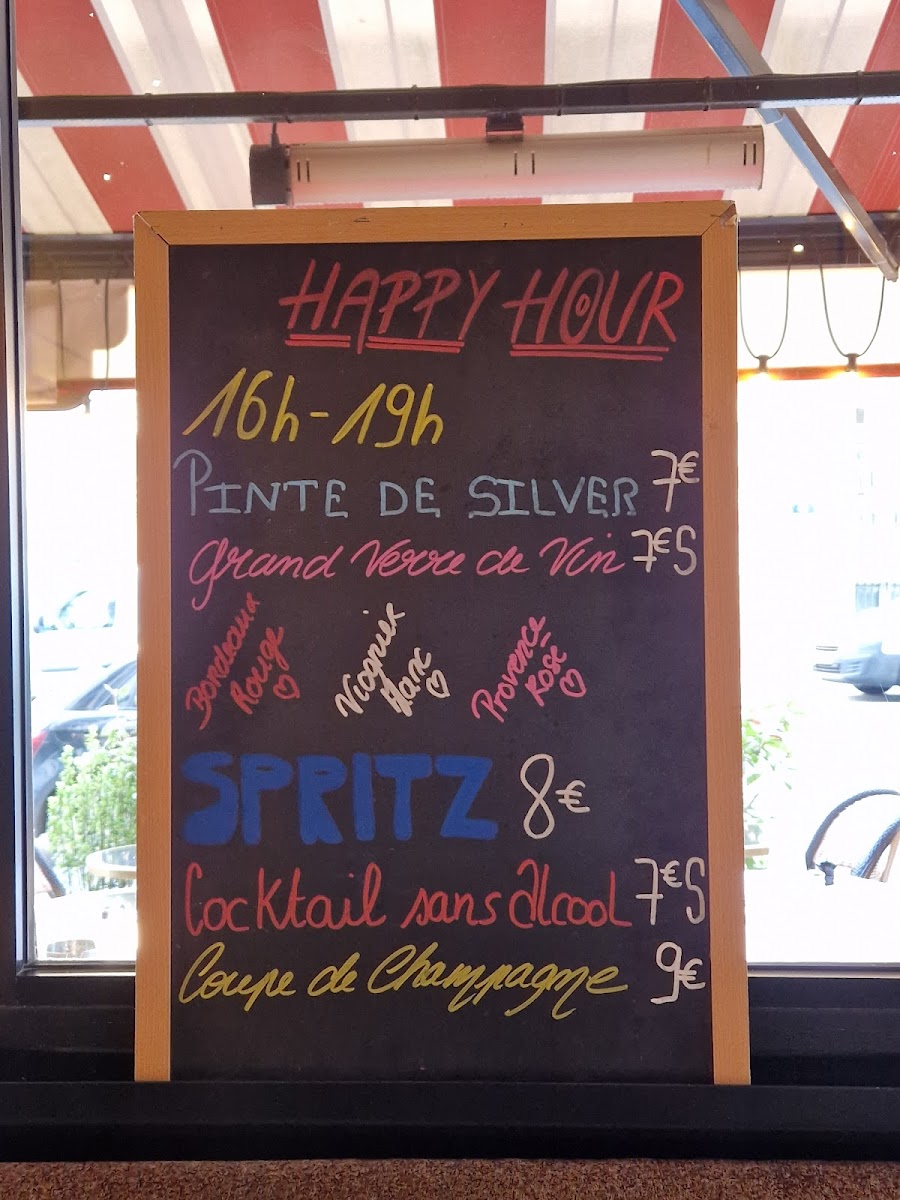 HAPPY HOUR
16h-19h
PINTE DE SILVER 7€
Grand Verre de Vin 7€5
Bordeaux
Rouge ♡
Viognier
Blanc ♡
Provence
Rosé ♡
SPRITZ 8€
Cocktail sans alcool 7€5
Coupe de Champagne 9€